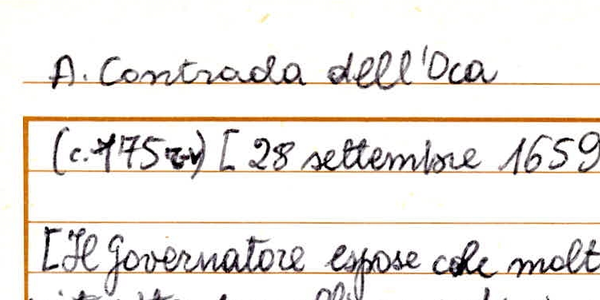 A. Contrada dell'Oca
(c. 175rv) [28 settembre 1659
[Il Governatore espose che molt